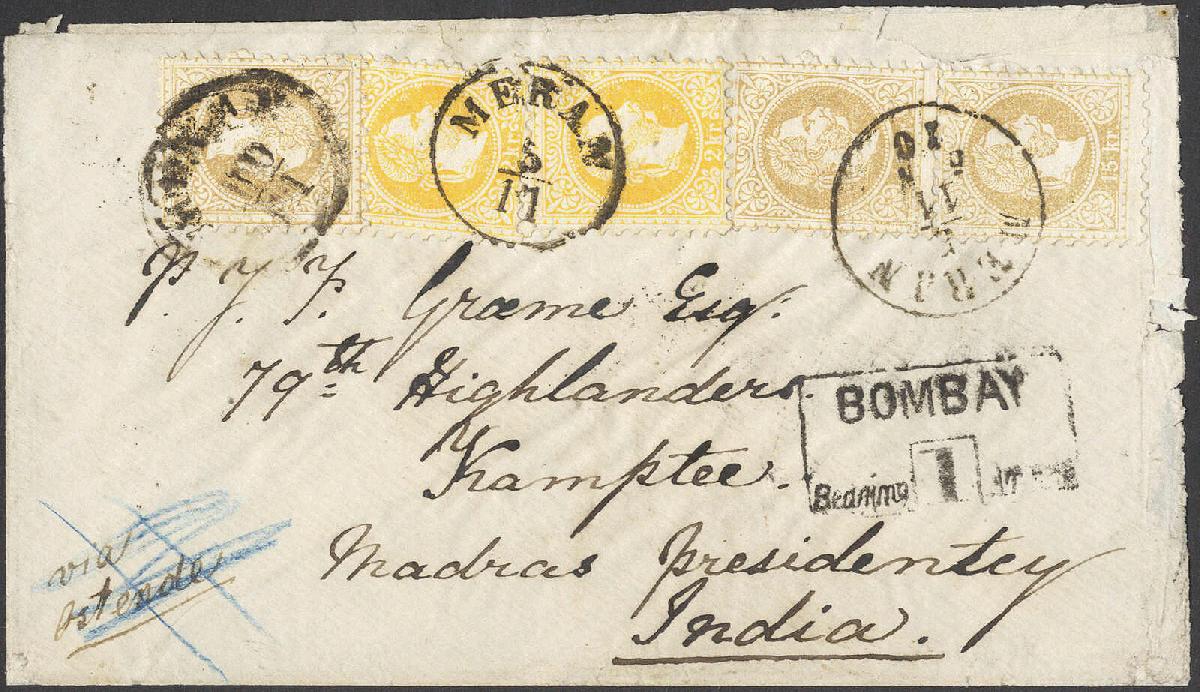 MERAN
5
17
2 kr
15 kr
MERAN
P. J. F. Græme Esq:
79th Highlanders.
BOMBAY
Kamptee.
Bearing 1
via
Ostende
Madras Presidentcy
India.